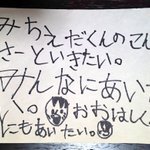 みちえだくんのこん
さーといきたい。
みんなにあいた
く。おおはしく
にもあいたい。